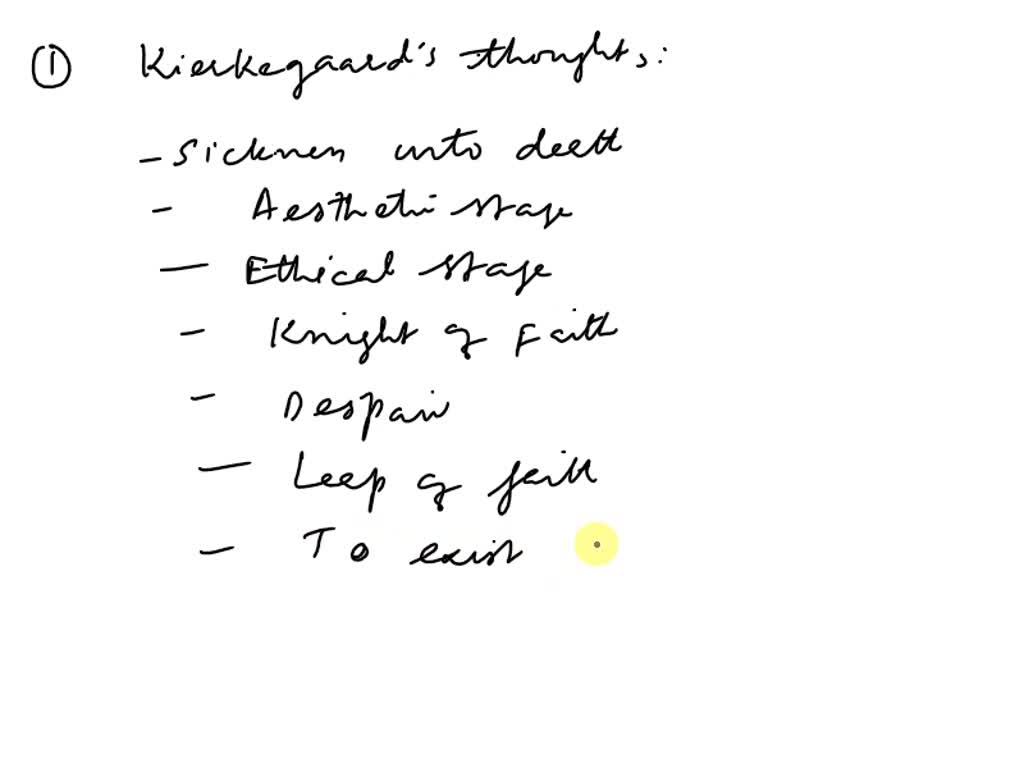 ① Kierkegaard's thoughts:
- Sickness unto death
- Aesthetic stage
- Ethical stage
- Knight of Faith
- Despair
- Leap of faith
- To exist